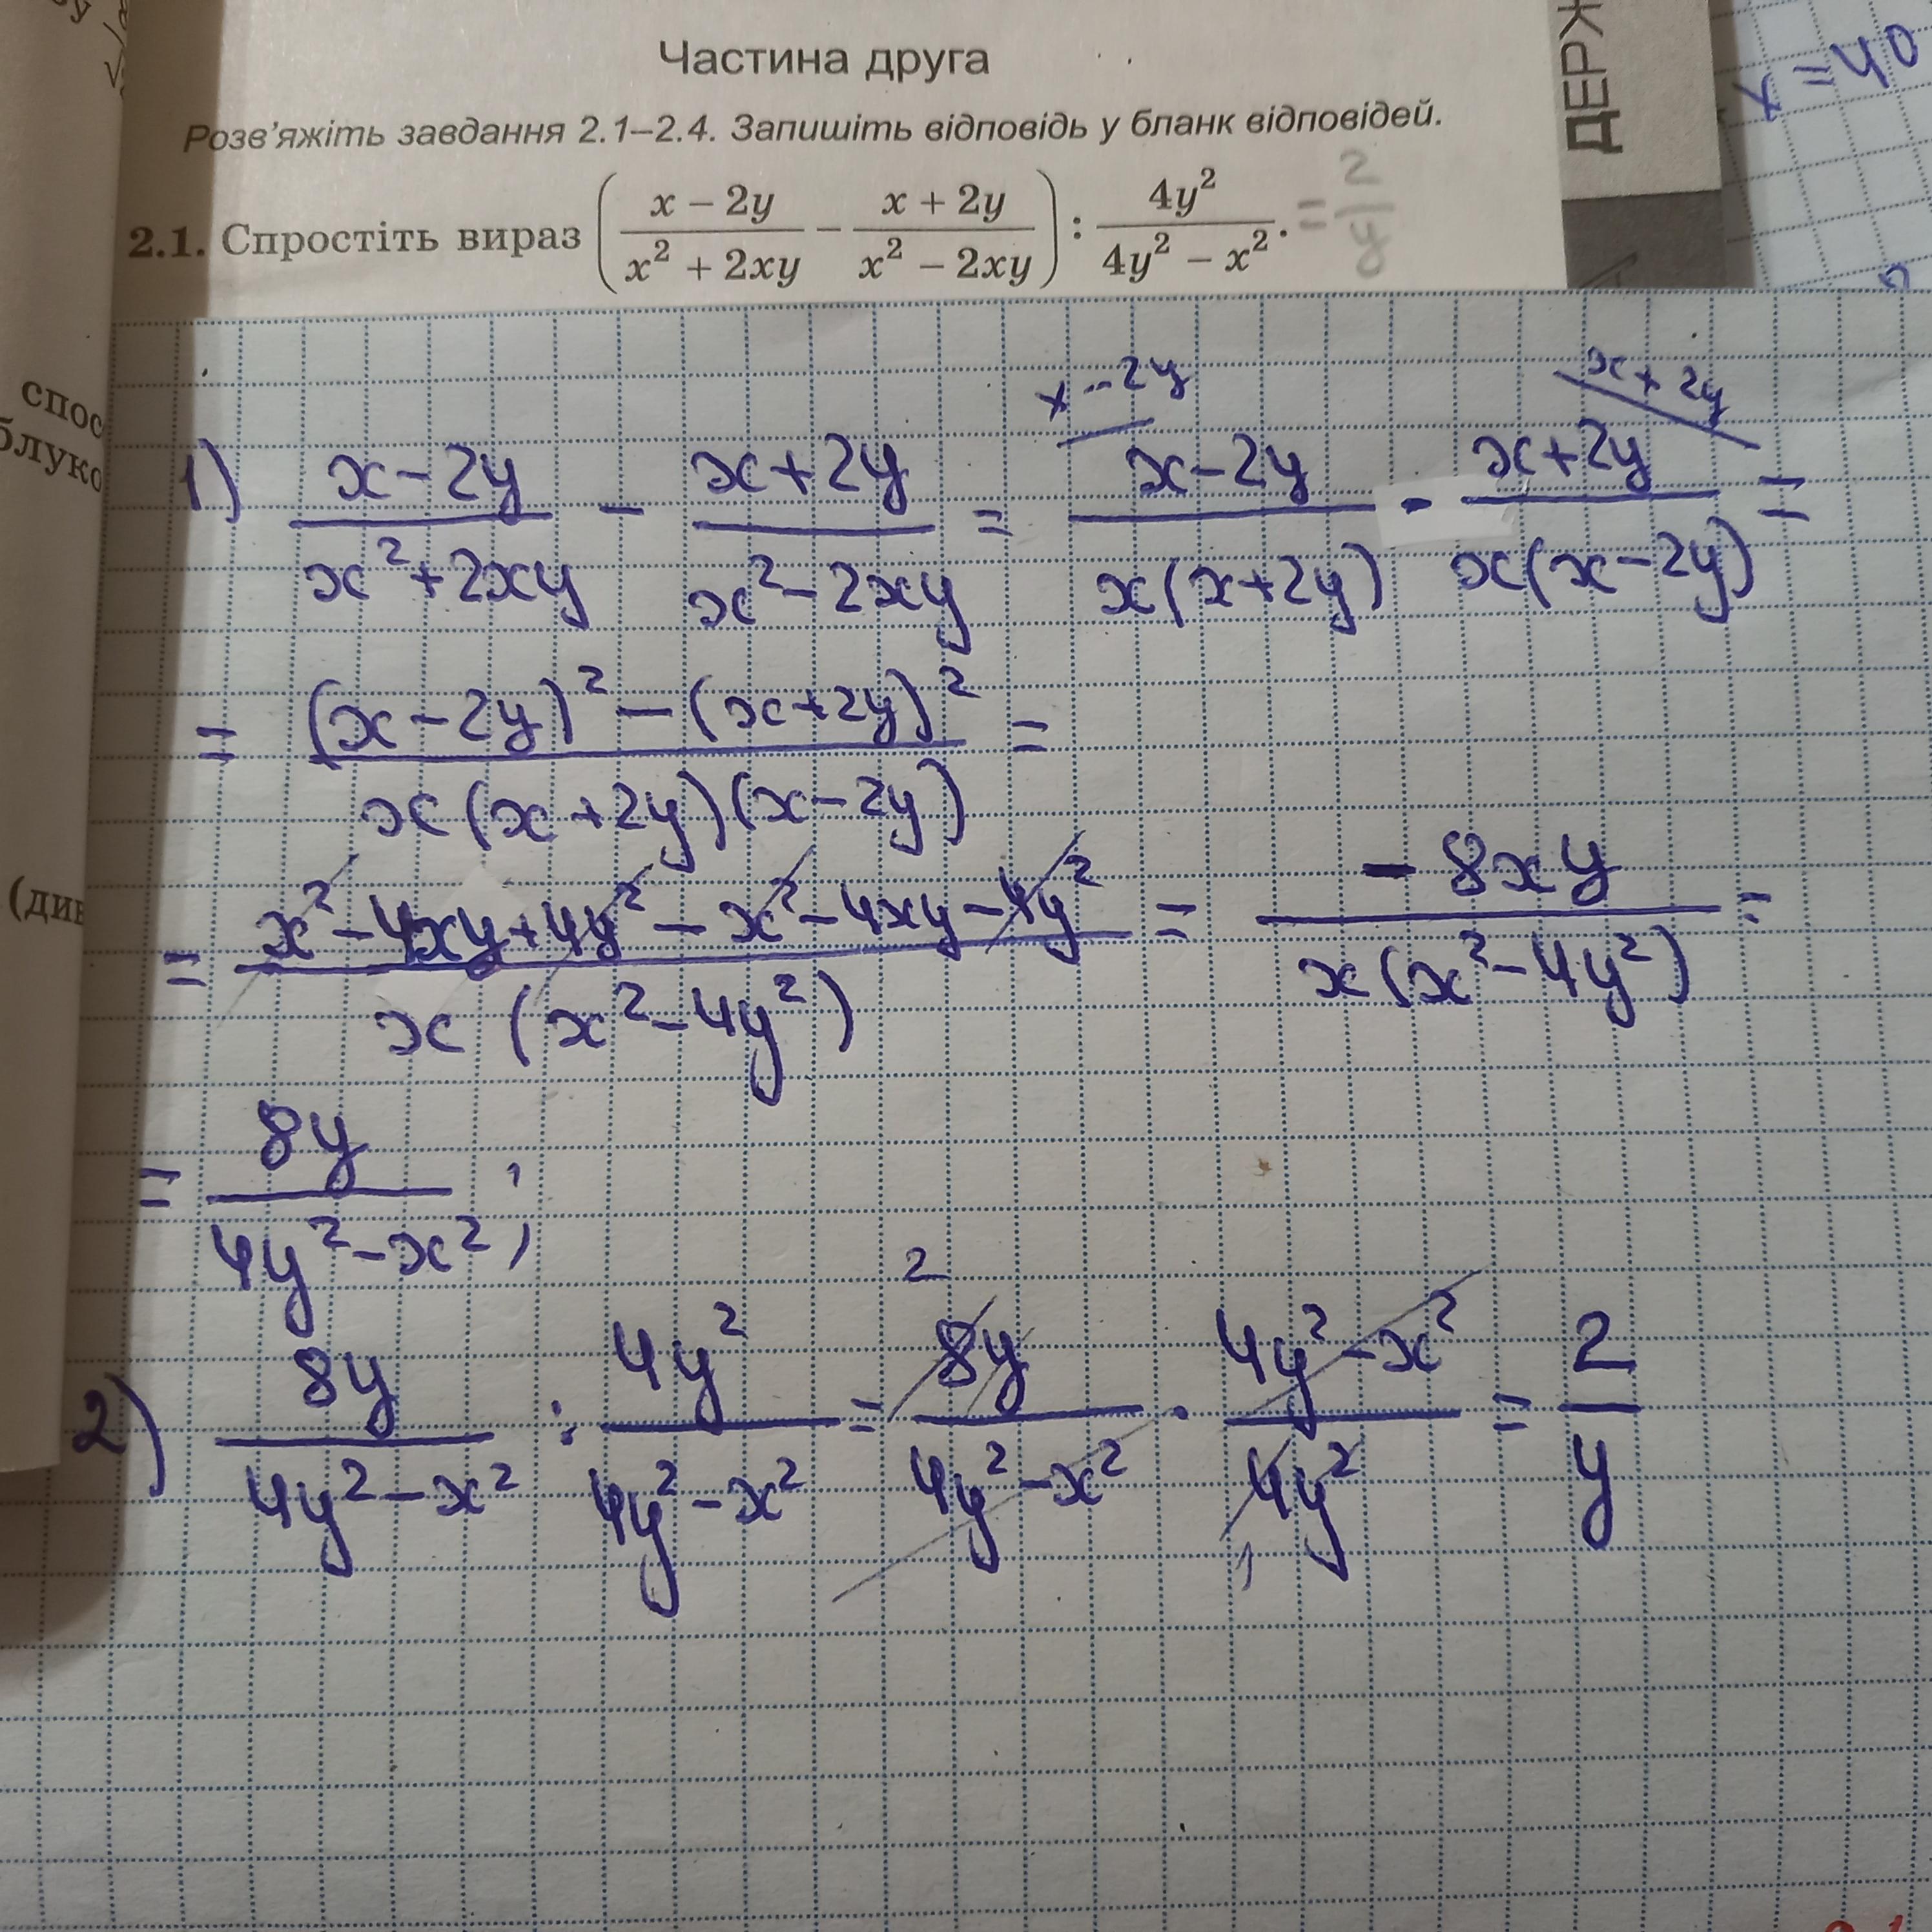 Частина друга
Розв'яжіть завдання 2.1–2.4. Запишіть відповідь у бланк відповідей.
2.1. Спростіть вираз ( (x − 2y)/(x² + 2xy) − (x + 2y)/(x² − 2xy) ) : 4y²/(4y² − x²). = 2/y
ДЕРЖ
x = 40
спос
блуко
(див
x − 2y x + 2y
1) (x−2y)/(x²+2xy) − (x+2y)/(x²−2xy) = (x−2y)/(x(x+2y)) - (x+2y)/(x(x−2y)) =
= ((x−2y)² − (x+2y)²)/(x(x+2y)(x−2y)) =
= (x²−4xy+4y² − x²−4xy−4y²)/(x(x²−4y²)) = −8xy/(x(x²−4y²)) =
= 8y/(4y²−x²) ;
2
2) 8y/(4y²−x²) : 4y²/(4y²−x²) = 8y/(4y²−x²) · (4y²−x²)/4y² = 2/y
1